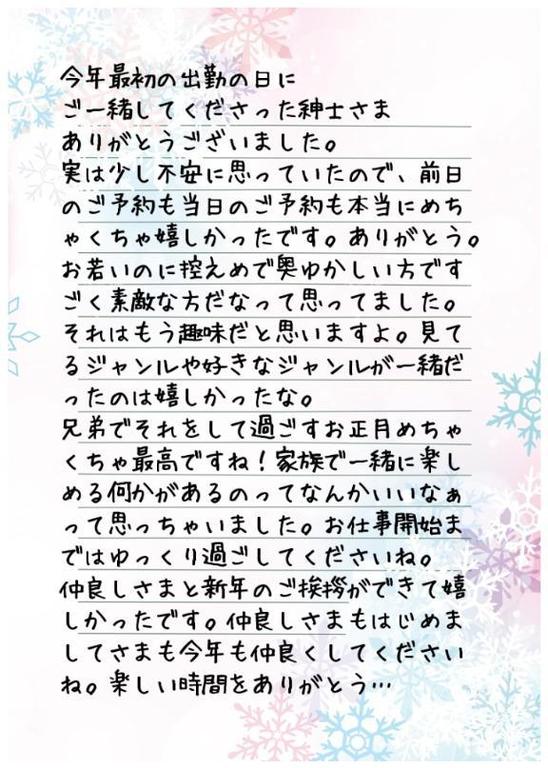 今年最初の出勤の日に
ご一緒してくださった紳士さま
ありがとうございました。
実は少し不安に思っていたので、前日
のご予約も当日のご予約も本当にめち
ゃくちゃ嬉しかったです。ありがとう。
お若いのに控えめで奥ゆかしい方です
ごく素敵な方だなって思ってました。
それはもう趣味だと思いますよ。見て
るジャンルや好きなジャンルが一緒だ
ったのは嬉しかったな。
兄弟でそれをして過ごすお正月めちゃ
くちゃ最高ですね！家族で一緒に楽し
める何かがあるのってなんかいいなぁ
って思っちゃいました。お仕事開始ま
ではゆっくり過ごしてくださいね。
仲良しさまと新年のご挨拶ができて嬉
しかったです。仲良しさまもはじめま
してさまも今年も仲良くしてください
ね。楽しい時間をありがとう…